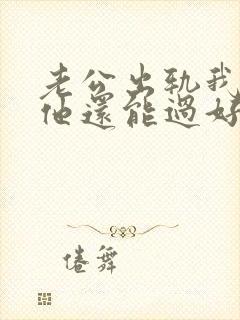 老公出轨我
他還能過好
倦舞